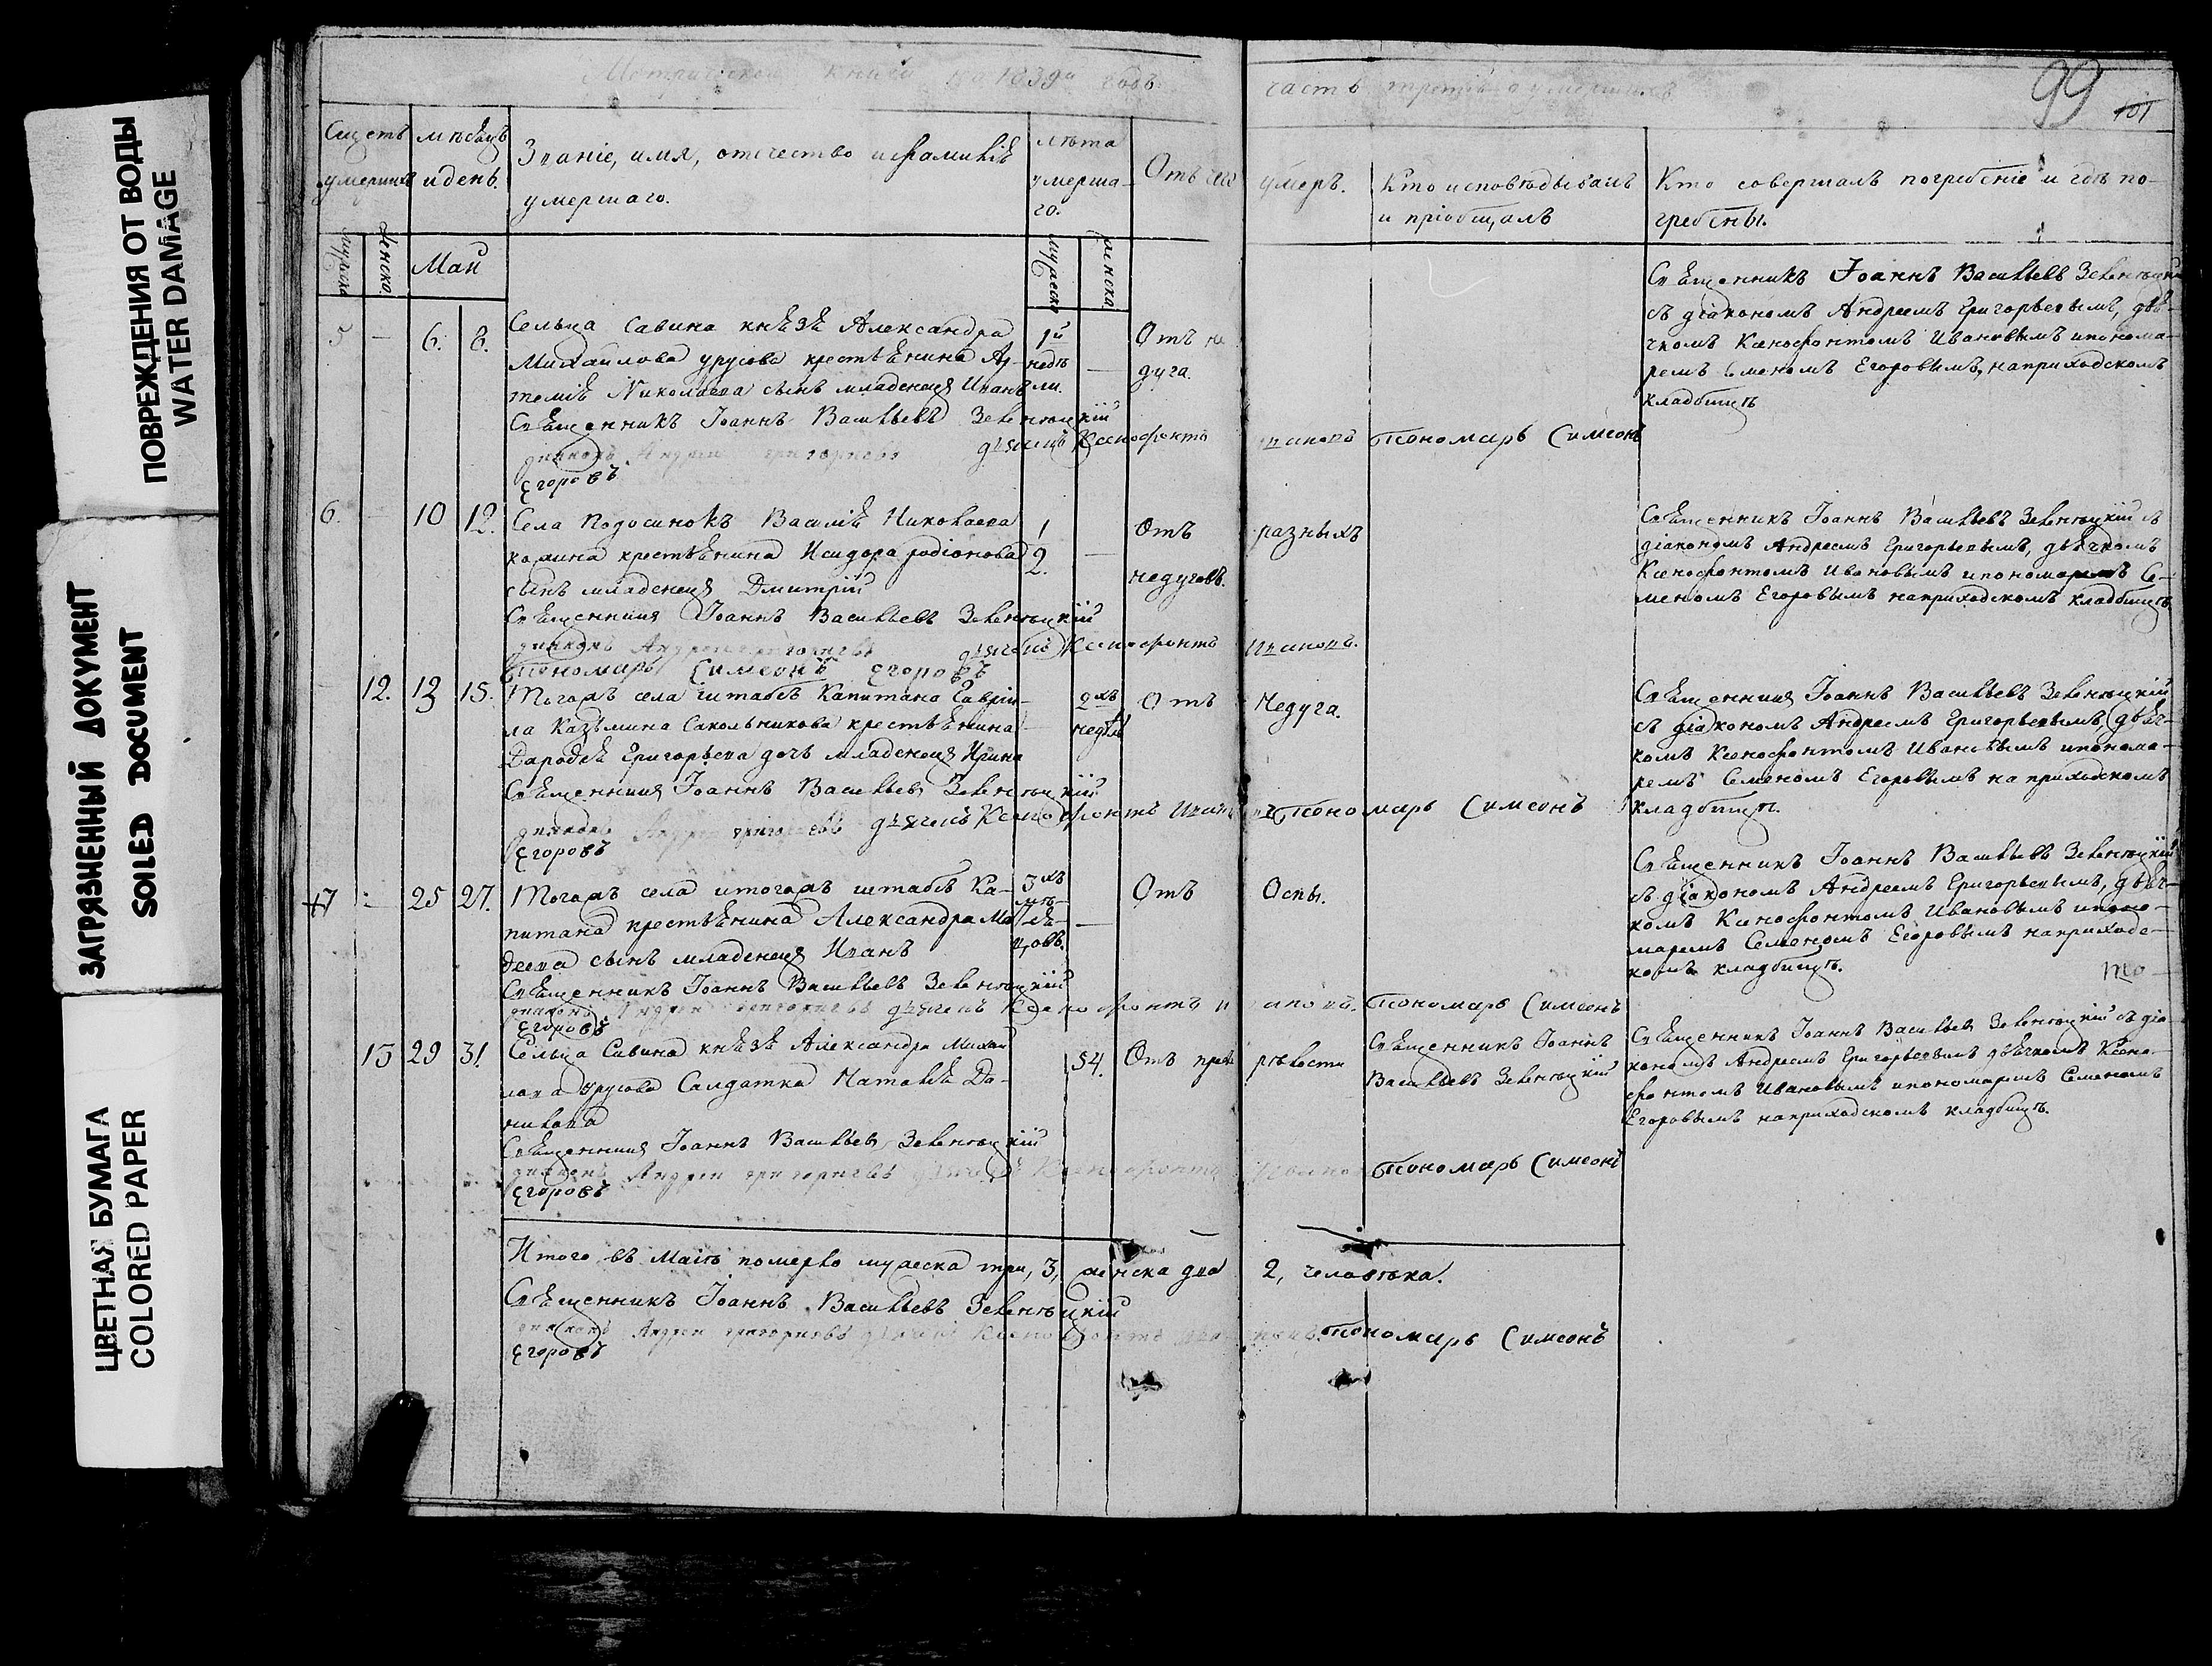 ПОВРЕЖДЕНИЯ ОТ ВОДЫ
WATER DAMAGE
ЗАГРЯЗНЕННЫЙ ДОКУМЕНТ
SOILED DOCUMENT
ЦВЕТНАЯ БУМАГА
COLORED PAPER
Метрической книги на 1839й годъ часть третія о умершихъ
99
101
Счетъ умершихъ
мѣсяцъ и день.
Званіе, имя, отчество и фамилія
умершаго.
лѣта
умерша-
го.
Отъ чего умеръ.
Кто исповѣдывалъ
и пріобщалъ
Кто совершалъ погребеніе и гдѣ по-
гребены.
мужеска
женска
Май
мужеска
женска
5 — 6. 8.
Сельца Савина князя Александра
Михайлова Урусова крестьянина Ар-
темія Николаева сынъ младенецъ Иванъ
1й
недѣ
ли.
—
Отъ не
дуга.
Священникъ Іоаннъ Васильевъ Зеленецкій
съ діакономъ Андреемъ Григорьевымъ, дья-
чкомъ Ксенофонтомъ Ивановымъ и понома-
ремъ Семеномъ Егоровымъ, на приходскомъ
кладбищѣ
Священникъ Іоаннъ Васильевъ Зеленецкій
диаконъ Андрей григорьевъ дьячекъ Ксенофонтъ ивановъ Пономарь Симеонъ
Егоровъ
6. — 10 12.
Села Подосинокъ Василія Николаева
крестьянина Исидора родіонова
сынъ младенецъ Дмитрій
1
2.
—
Отъ разныхъ
недуговъ.
Священникъ Іоаннъ Васильевъ Зеленецкій съ
діакономъ Андреемъ Григорьевымъ, дьячкомъ
Ксенофонтомъ Ивановымъ и пономаремъ Се-
меномъ Егоровымъ на приходскомъ кладбищѣ
Священникъ Іоаннъ Васильевъ Зеленецкій
диаконъ Андрей григорьевъ дьячекъ Ксенофонтъ Ивановъ.
Пономарь Симеонъ Егоровъ
— 12. 13 15.
Тогожъ села штабсъ Капитана Гаврі-
ла Казьмина Сакольникова крестьянина
Григорьева дочь младенецъ Ирина
2хъ
недѣль
Отъ Недуга.
Священникъ Іоаннъ Васильевъ Зеленецкій
съ діакономъ Андреемъ Григорьевымъ, дьяч-
комъ Ксенофонтомъ Ивановымъ и понома-
ремъ Семеномъ Егоровымъ на приходскомъ
кладбищѣ.
Священникъ Іоаннъ Васильевъ Зеленецкій
диаконъ Андрей григорьевъ дьячекъ Ксенофонтъ Ивановъ Пономарь Симеонъ
Егоровъ
7 — 25 27.
Тогожъ села и тогожъ штабсъ Ка-
питана крестьянина Александра
сынъ младенецъ Иванъ
3хъ
мѣ-
ся-
цовъ.
—
Отъ Оспы.
Священникъ Іоаннъ Васильевъ Зеленецкій
съ діакономъ Андреемъ Григорьевымъ, дьяч-
комъ Ксенофонтомъ Ивановымъ и поно-
маремъ Семеномъ Егоровымъ на приходс-
комъ кладбищѣ.
Священникъ Іоаннъ Васильевъ Зеленецкій
диаконъ Андрей григорьевъ дьячекъ Ксенофонтъ ивановъ. Пономарь Симеонъ
Егоровъ
13 29 31.
Сельца Савина князя Александра Михай
лова Урусова Салдатка Наталья Да-
нилова
54.
Отъ прест рѣлости
Священникъ Іоаннъ
Васильевъ Зеленецкій
Священникъ Іоаннъ Васильевъ Зеленецкій съ діа
кономъ Андреемъ Григорьевымъ дьячкомъ Ксено-
фонтомъ Ивановымъ и пономаремъ Семеномъ
Егоровымъ на приходскомъ кладбищѣ.
Священникъ Іоаннъ Васильевъ Зеленецкій
диаконъ Андрей григорьевъ дьячекъ Ксенофонтъ Ивановъ Пономарь Симеонъ
Егоровъ
Итого въ Маіѣ померло мужеска три, 3, женска два 2, человѣка.
Священникъ Іоаннъ Васильевъ Зеленецкій
диаконъ Андрей григорьевъ дьячекъ Ксенофонтъ ивановъ. Пономарь Симеонъ
Егоровъ